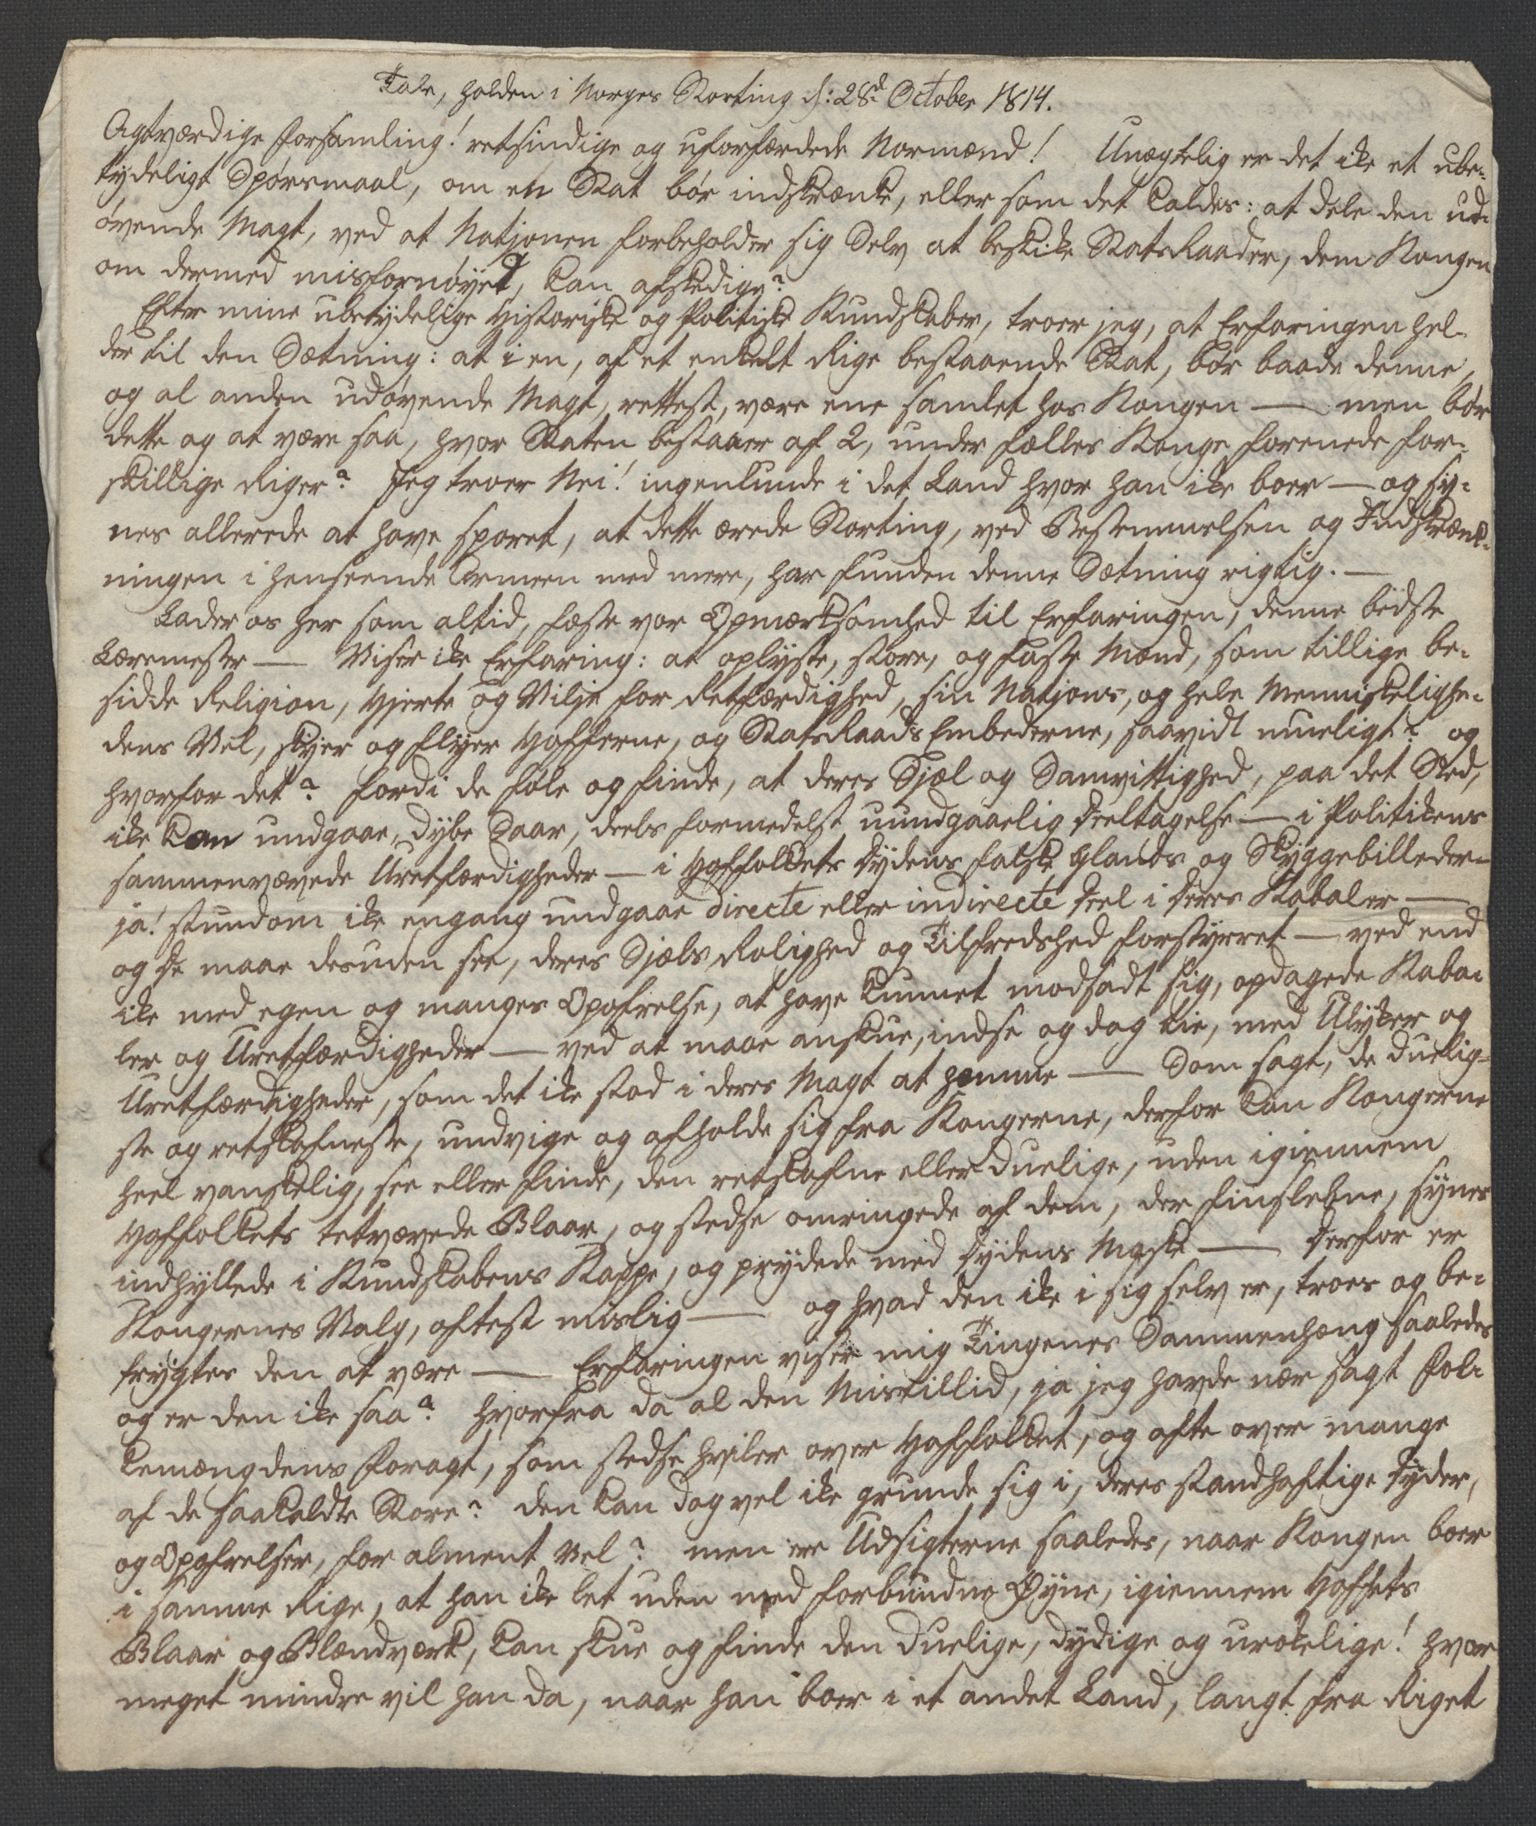 Tale, holden i Norges Storting d: 28d October 1814.
Agtværdige Forsamling! retsindige og uforfærdede Normænd! Unægtelig er det ike et ube-
tydeligt Spörsmaal, om en Stat bör indskrænke, eller som det kaldes: at dele den ud-
övende Magt, ved at Natjonen forbeholder sig Selv at beskike StatsRaader, dem Kongen
om dermed misfornöyet, kan afskedige?
Efter mine ubetydelige Historiske og Politiske Kundskaber, troer jeg, at Erfaringen hel-
der til den Sætning: at i en, af et enkelt Rige bestaaende Stat, bör baade denne,
og al anden udövende Magt, rettest, være ene samlet hos Kongen — men bör
dette og at være saa, hvor Staten bestaaer af 2, under fælles Konge forenede for-
skillige Riger? Jeg troer Nei! ingenlunde i det Land hvor han ike boer — og sy-
nes allerede at have sporet, at dette ærede Storting, ved Bestemmelsen og Indskrænk-
ningen i henseende Armeen med mere, har funden denne Sætning rigtig. —
Lader os her som altid, fæste vor Opmærksomhed til Erfaringen, denne bedste
Læremester — Viser ike Erfaring: at oplyste, store, og faste Mænd, som tillige be-
sidde Religion, Hjerte og Vilje for Retfærdighed, sin Natjons, og hele Menniskelighe-
dens Vel, skyer og flyer Hofferne, og StatsRaads Embederne, saavidt mueligt? og
hvorfor det? fordi de föle og finde, at deres Sjæl og Samvittighed, paa det Sted,
ike kan undgaae, dybe Saar, deels formedelst uundgaaelig Deeltagelse — i Politikens
sammenvævede Uretfærdigheder — i Hoffolkets Dydens falske Glands og Skyggebilleder —
ja! stundom ike engang undgaae directe eller indirecte Deel i deres Kabaler —
og de maae desuden see, deres Sjæls Rolighed og Tilfredshed forstyrret — ved end
ike med egen og manges Opofrelse, at have kunnet modsadt sig, opdagede Kaba-
ler og Uretfærdigheder — ved at maae anskue, indse og dog tie, med Ulyker og
Uretfærdigheder, som det ike stod i deres Magt at hemme — Som sagt, de duelig-
ste og retskafneste, undvige og afholde sig fra Kongerne, derfor kan Kongerne
heel vanskelig, see eller finde, den retskafne eller duelige, uden igiennem
Hoffolkets tetvævede Blaar, og stedse omringede af dem, der finslebne, synes
indhyllede i Kundskabens Kappe, og prydede med Dydens Maske — Derfor er
Kongernes Valg, oftest mislig — og hvad den ike i sig selv er, troes og be-
frygtes den at være — Erfaringen viser mig Tingenes Sammenhæng saaledes
og er den ike saa? hvorfra da al den Mistillid, ja jeg havde nær sagt Fol-
kemængdens Foragt, som stedse hviler over Hoffolket, og ofte over mange
af de saakaldte Store? den kan dog vel ike grunde sig i, deres standhaftige Dyder,
og Opofrelser, for alment Vel? men ere Udsigterne saaledes, naar Kongen boer
i samme Rige, at han ike let uden med forbundne Öyne, igiennem Hoffets
Blaar og Blændværk, kan skue og finde den duelige, dydige og urokelige! hvor
meget mindre vil han da, naar han boer i et andet Land, langt fra Riget